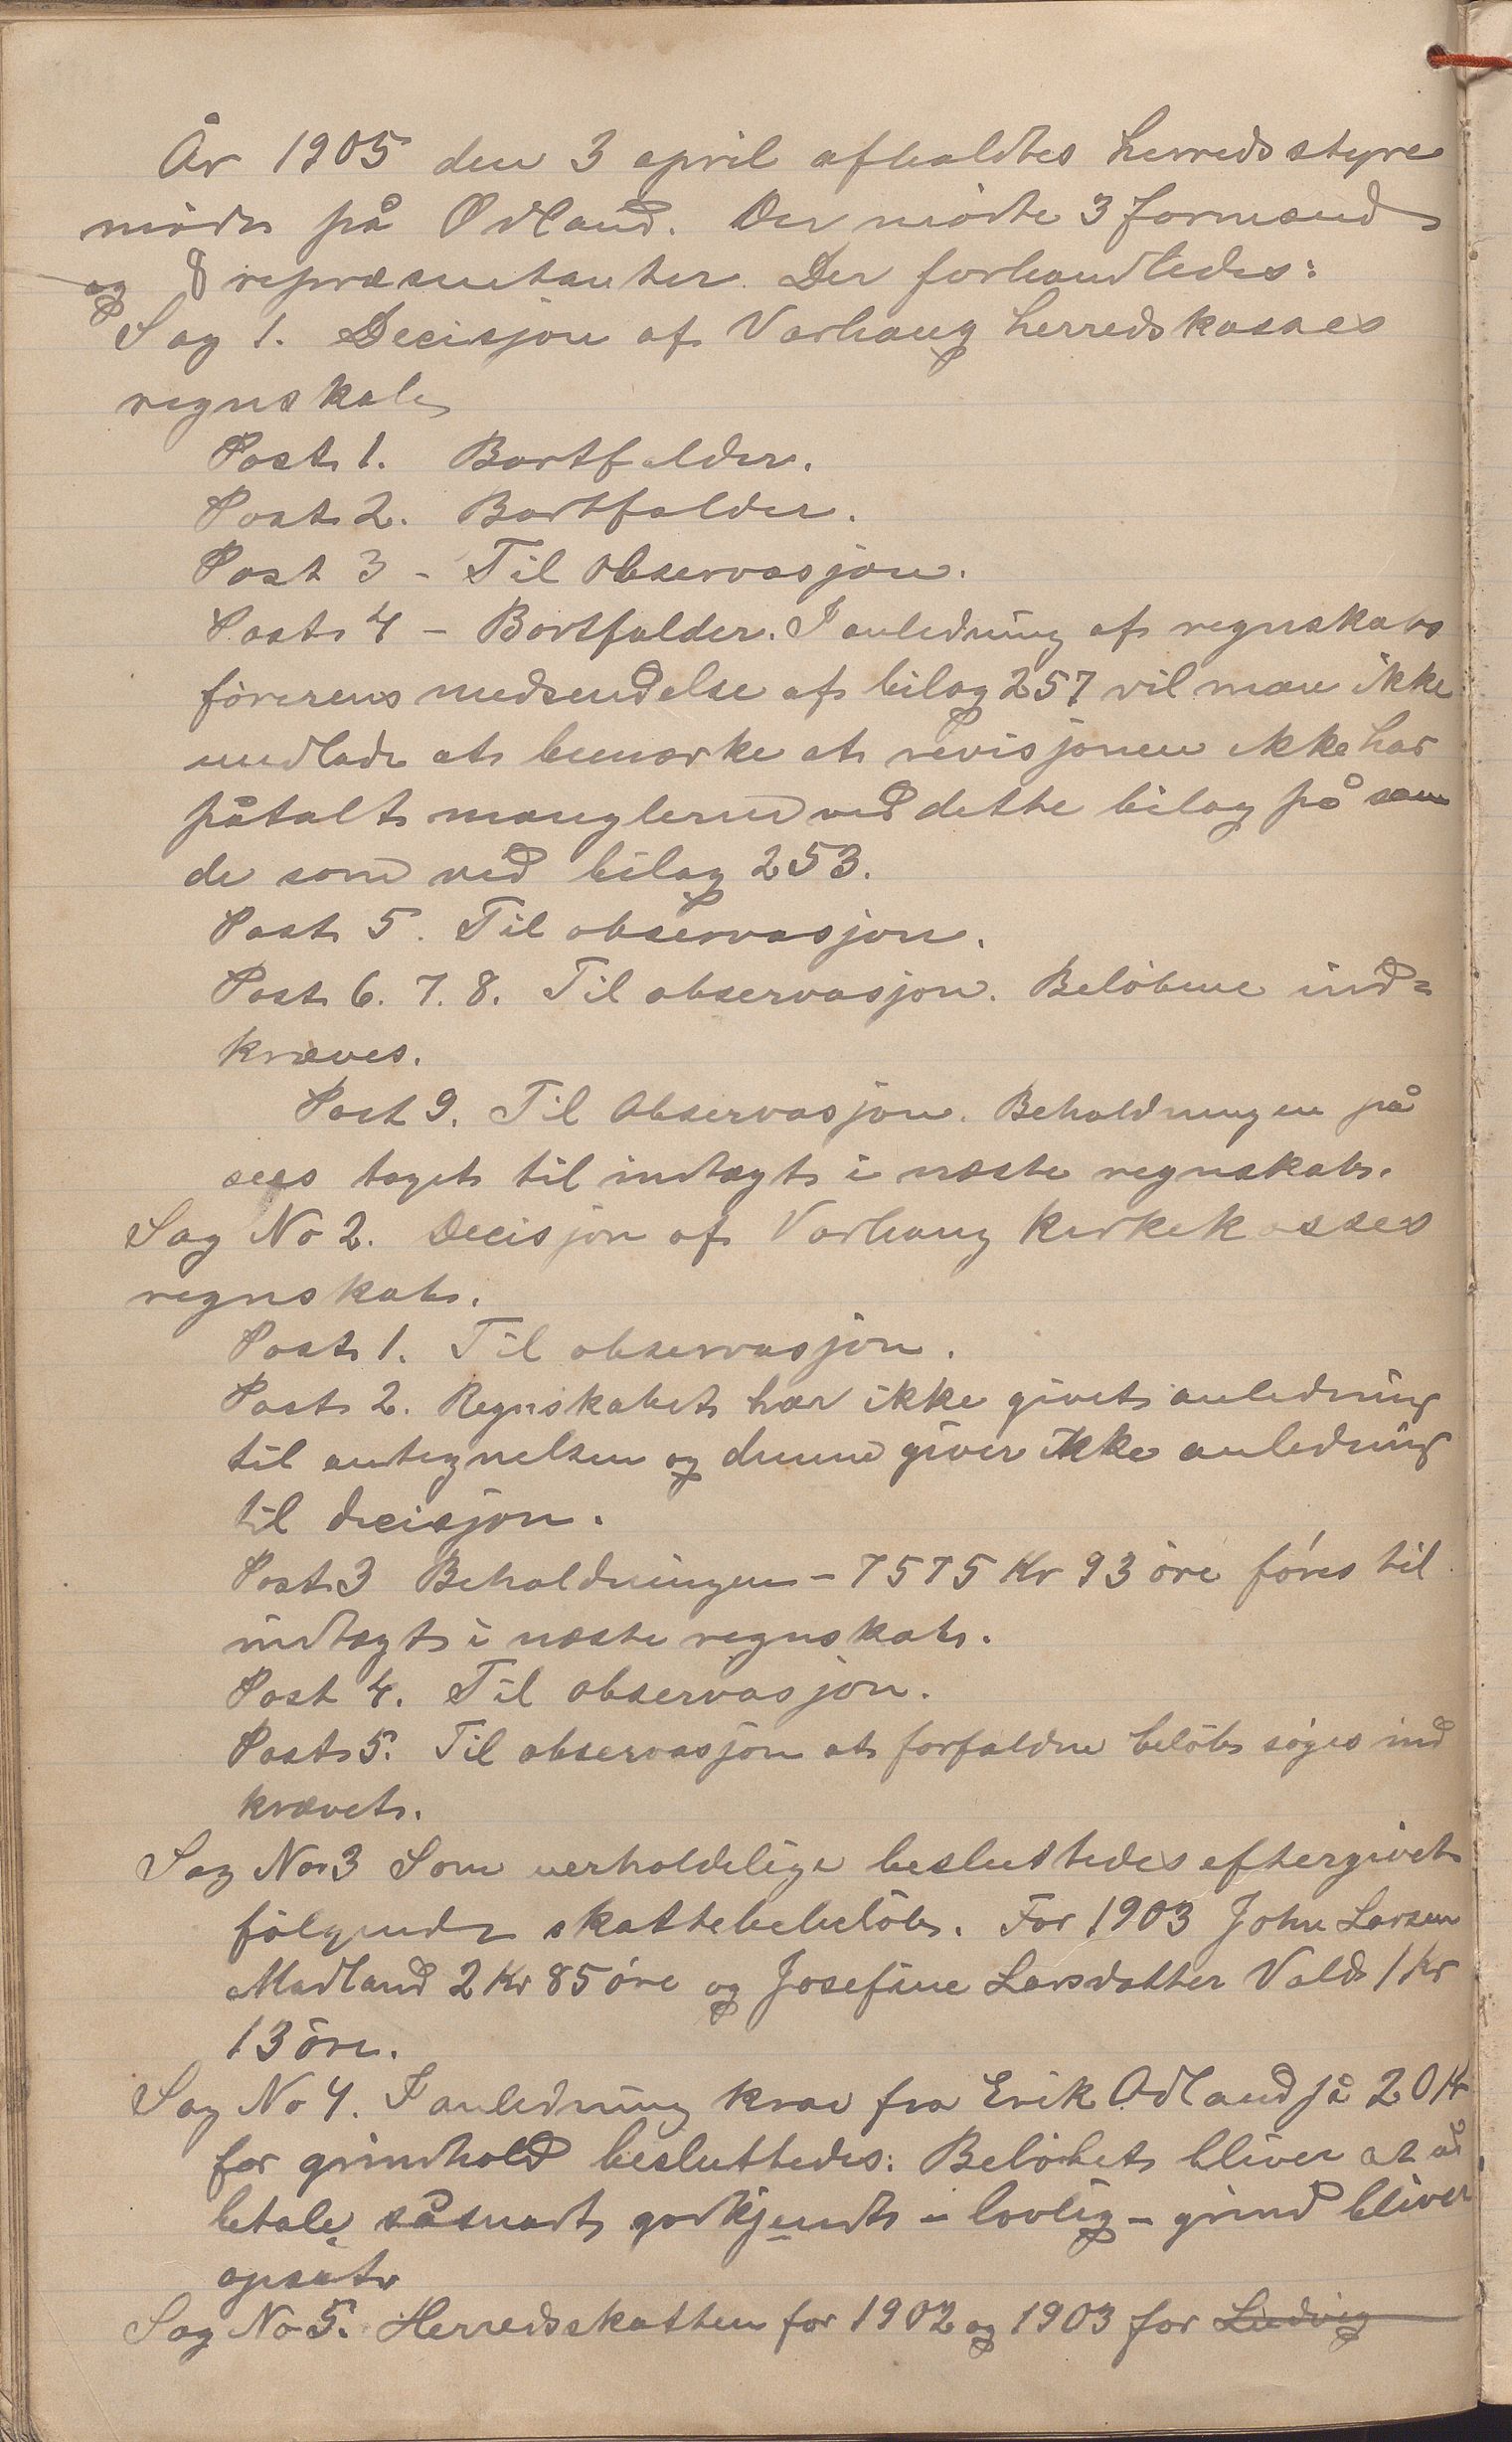 År 1905 den 3 april afholdtes herredsstyre
möde på Odland. Der mödte 3 formænd
og 8 repræsentanter. Der forhandledes:
Sag 1. Decisjon af Varhaug herredskasses
regnskab
Post 1. Bortfalder.
Post 2. Bortfalder.
Post 3 - Til Observasjon.
Post 4 - Bortfalder. I anledning af regnskabs
förerens medsendelse af bilag 257 vil man ikke
undlade at bemærke at revisjonen ikke har
påtalt manglerne ved dette bilag på sam
de som ved bilag 253.
Post 5. Til observasjon.
Post 6. 7. 8. Til observasjon. Belöbene ind=
kræves.
Post 9. Til Observasjon. Beholdningen på
sees taget til indtægt i næste regnskab.
Sag No 2. Decisjon af Varhaug kirkekasses
regnskab.
Post 1. Til observasjon.
Post 2. Regnskabet har ikke givet anledning
til antegnelsen og denne giver ikke anledning
til decisjon.
Post 3 Beholdningen - 7575 Kr 93 öre föres til
indtægt i næste regnskab.
Post 4. Til observasjon.
Post 5. Til observasjon at forfaldne belöb söges ind
krævet.
Sag No 3 Som uerholdelige besluttedes eftergivet
fölgende skattebebelöb. For 1903 John Larsen
Madland 2 Kr 85 öre og Josefine Larsdatter Vold 1 Kr
13 öre.
Sag No 4. I anledning krav fra Erik Odland på 20 Kr
for grindhold besluttedes: Belöbet bliver at ud
betale såsnart godkjendt - lovlig - grind bliver
opsat
Sag No 5. Herredsskatten for 1902 og 1903 for Ludvig